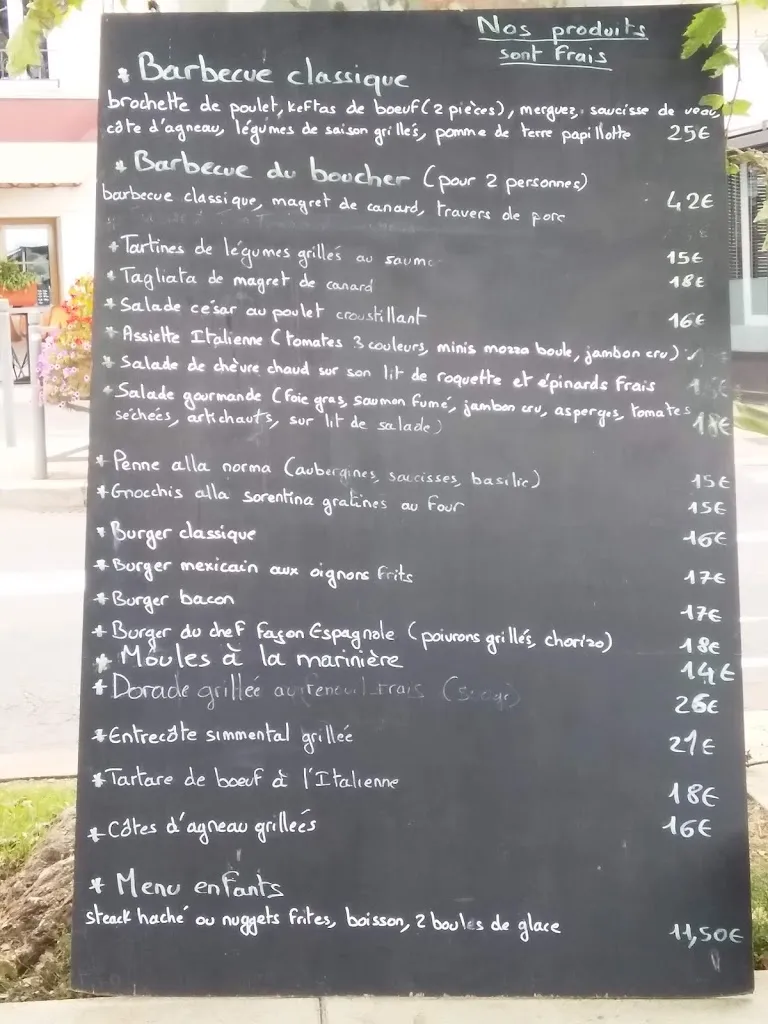 Nos produits
sont frais
* Barbecue classique
brochette de poulet, keftas de boeuf (2 pièces), merguez, saucisse de veau,
côte d'agneau, légumes de saison grillés, pomme de terre papillotte 25€
* Barbecue du boucher (pour 2 personnes)
barbecue classique, magret de canard, travers de porc 42€
* Tartines de légumes grillés au saumon 15€
* Tagliata de magret de canard 18€
* Salade césar au poulet croustillant 16€
* Assiette Italienne (tomates 3 couleurs, minis mozza boule, jambon cru)
* Salade de chèvre chaud sur son lit de roquette et épinards frais
* Salade gourmande (foie gras, saumon fumé, jambon cru, asperges, tomates
séchées, artichauts, sur lit de salade) 18€
* Penne alla norma (aubergines, saucisses, basilic) 15€
* Gnocchis alla sorentina gratines au four 15€
* Burger classique 16€
* Burger mexicain aux oignons frits 17€
* Burger bacon 17€
* Burger du chef façon Espagnole (poivrons grillés, chorizo) 18€
* Moules à la marinière 14€
* Dorade grillée au fenouil frais 26€
* Entrecôte simmental grillée 21€
* Tartare de boeuf à l'Italienne 18€
* Côtes d'agneau grilleés 16€
* Menu enfants
steack haché ou nuggets frites, boisson, 2 boules de glace 11,50€